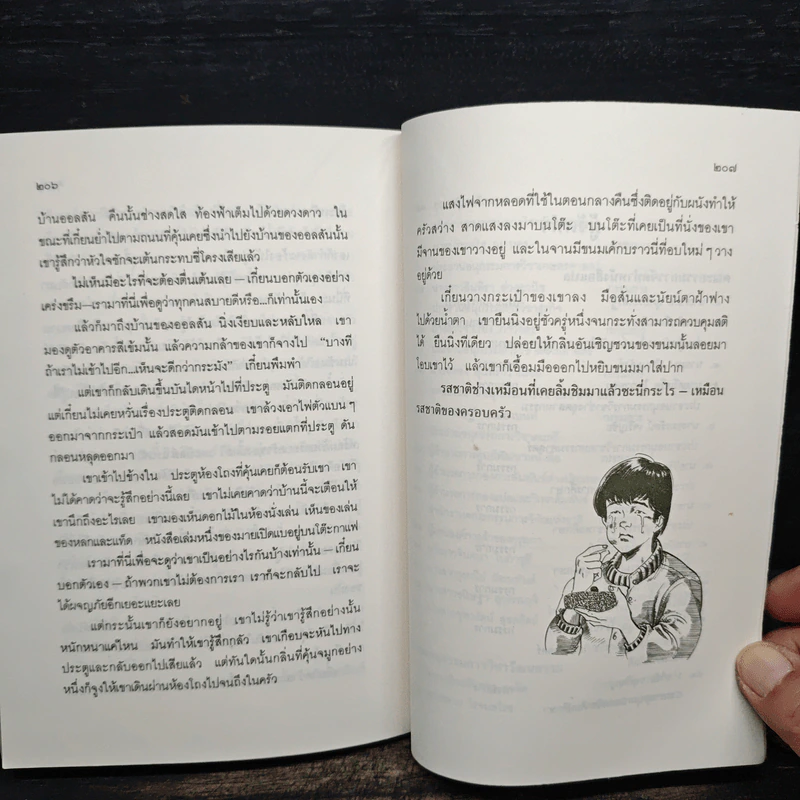 ๒๐๖
บ้านออลสัน คืนนั้นช่างสดใส ท้องฟ้าเต็มไปด้วยดวงดาว ใน
ขณะที่เกี๋ยนย่ำไปตามถนนที่คุ้นเคยซึ่งนำไปยังบ้านของออลสันนั้น
เขารู้สึกว่าหัวใจชักจะเต้นกระทบซี่โครงเสียแล้ว
ไม่เห็นมีอะไรที่จะต้องตื่นเต้นเลย — เกี๋ยนบอกตัวเองอย่าง
เคร่งขรึม—เรามาที่นี่เพื่อดูว่าทุกคนสบายดีหรือ...ก็เท่านั้นเอง
แล้วก็มาถึงบ้านของออลสัน นิ่งเงียบและหลับใหล เขา
มองดูตัวอาคารสีเข้มนั้น แล้วความกล้าของเขาก็จางไป "บางที
ถ้าเราไม่เข้าไปอีก...เห็นจะดีกว่ากระมัง" เกี๋ยนพึมพำ
แต่เขาก็กลับเดินขึ้นบันไดหน้าไปที่ประตู มันติดกลอนอยู่
แต่เกี๋ยนไม่เคยหวั่นเรื่องประตูติดกลอน เขาล้วงเอาไฟตัวแบน ๆ
ออกมาจากกระเป๋า แล้วสอดมันเข้าไปตามรอยแตกที่ประตู ดัน
กลอนหลุดออกมา
เขาเข้าไปข้างใน ประตูห้องโถงที่คุ้นเคยก็ต้อนรับเขา เขา
ไม่ได้คาดว่าจะรู้สึกอย่างนี้เลย เขาไม่เคยคาดว่าบ้านนี้จะเตือนให้
เขานึกถึงอะไรเลย เขามองเห็นดอกไม้ในห้องนั่งเล่น เห็นของเล่น
ของหลกและแท็ด หนังสือเล่มหนึ่งของมายเปิดแบอยู่บนโต๊ะกาแฟ
เรามาที่นี่เพื่อจะดูว่าเขาเป็นอย่างไรกันบ้างเท่านั้น — เกี๋ยน
บอกตัวเอง — ถ้าพวกเขาไม่ต้องการเรา เราก็จะกลับไป เราจะ
ได้ผจญภัยอีกเยอะแยะเลย
แต่กระนั้นเขาก็ยังอยากอยู่ เขาไม่รู้ว่าเขารู้สึกอย่างนั้น
หนักหนาแค่ไหน มันทำให้เขารู้สึกกลัว เขาเกือบจะหันไปทาง
ประตูและกลับออกไปเสียแล้ว แต่ทันใดนั้นกลิ่นที่คุ้นจมูกอย่าง
หนึ่งก็จูงให้เขาเดินผ่านห้องโถงไปจนถึงในครัว
๒๐๗
แสงไฟจากหลอดที่ใช้ในตอนกลางคืนซึ่งติดอยู่กับผนังทำให้
ครัวสว่าง สาดแสงลงมาบนโต๊ะ บนโต๊ะที่เคยเป็นที่นั่งของเขา
มีจานของเขาวางอยู่ และในจานมีขนมเค้กบราวนี่ที่อบใหม่ ๆ วาง
อยู่ด้วย
เกี๋ยนวางกระเป๋าของเขาลง มือสั่นและนัยน์ตาฝ้าฟาง
ไปด้วยน้ำตา เขายืนนิ่งอยู่ชั่วครู่หนึ่งจนกระทั่งสามารถควบคุมสติ
ได้ ยืนนิ่งทีเดียว ปล่อยให้กลิ่นอันเชิญชวนของขนมนั้นลอยมา
โอบเขาไว้ แล้วเขาก็เอื้อมมือออกไปหยิบขนมมาใส่ปาก
รสชาติช่างเหมือนที่เคยลิ้มชิมมาแล้วซะนี่กระไร — เหมือน
รสชาติของครอบครัว